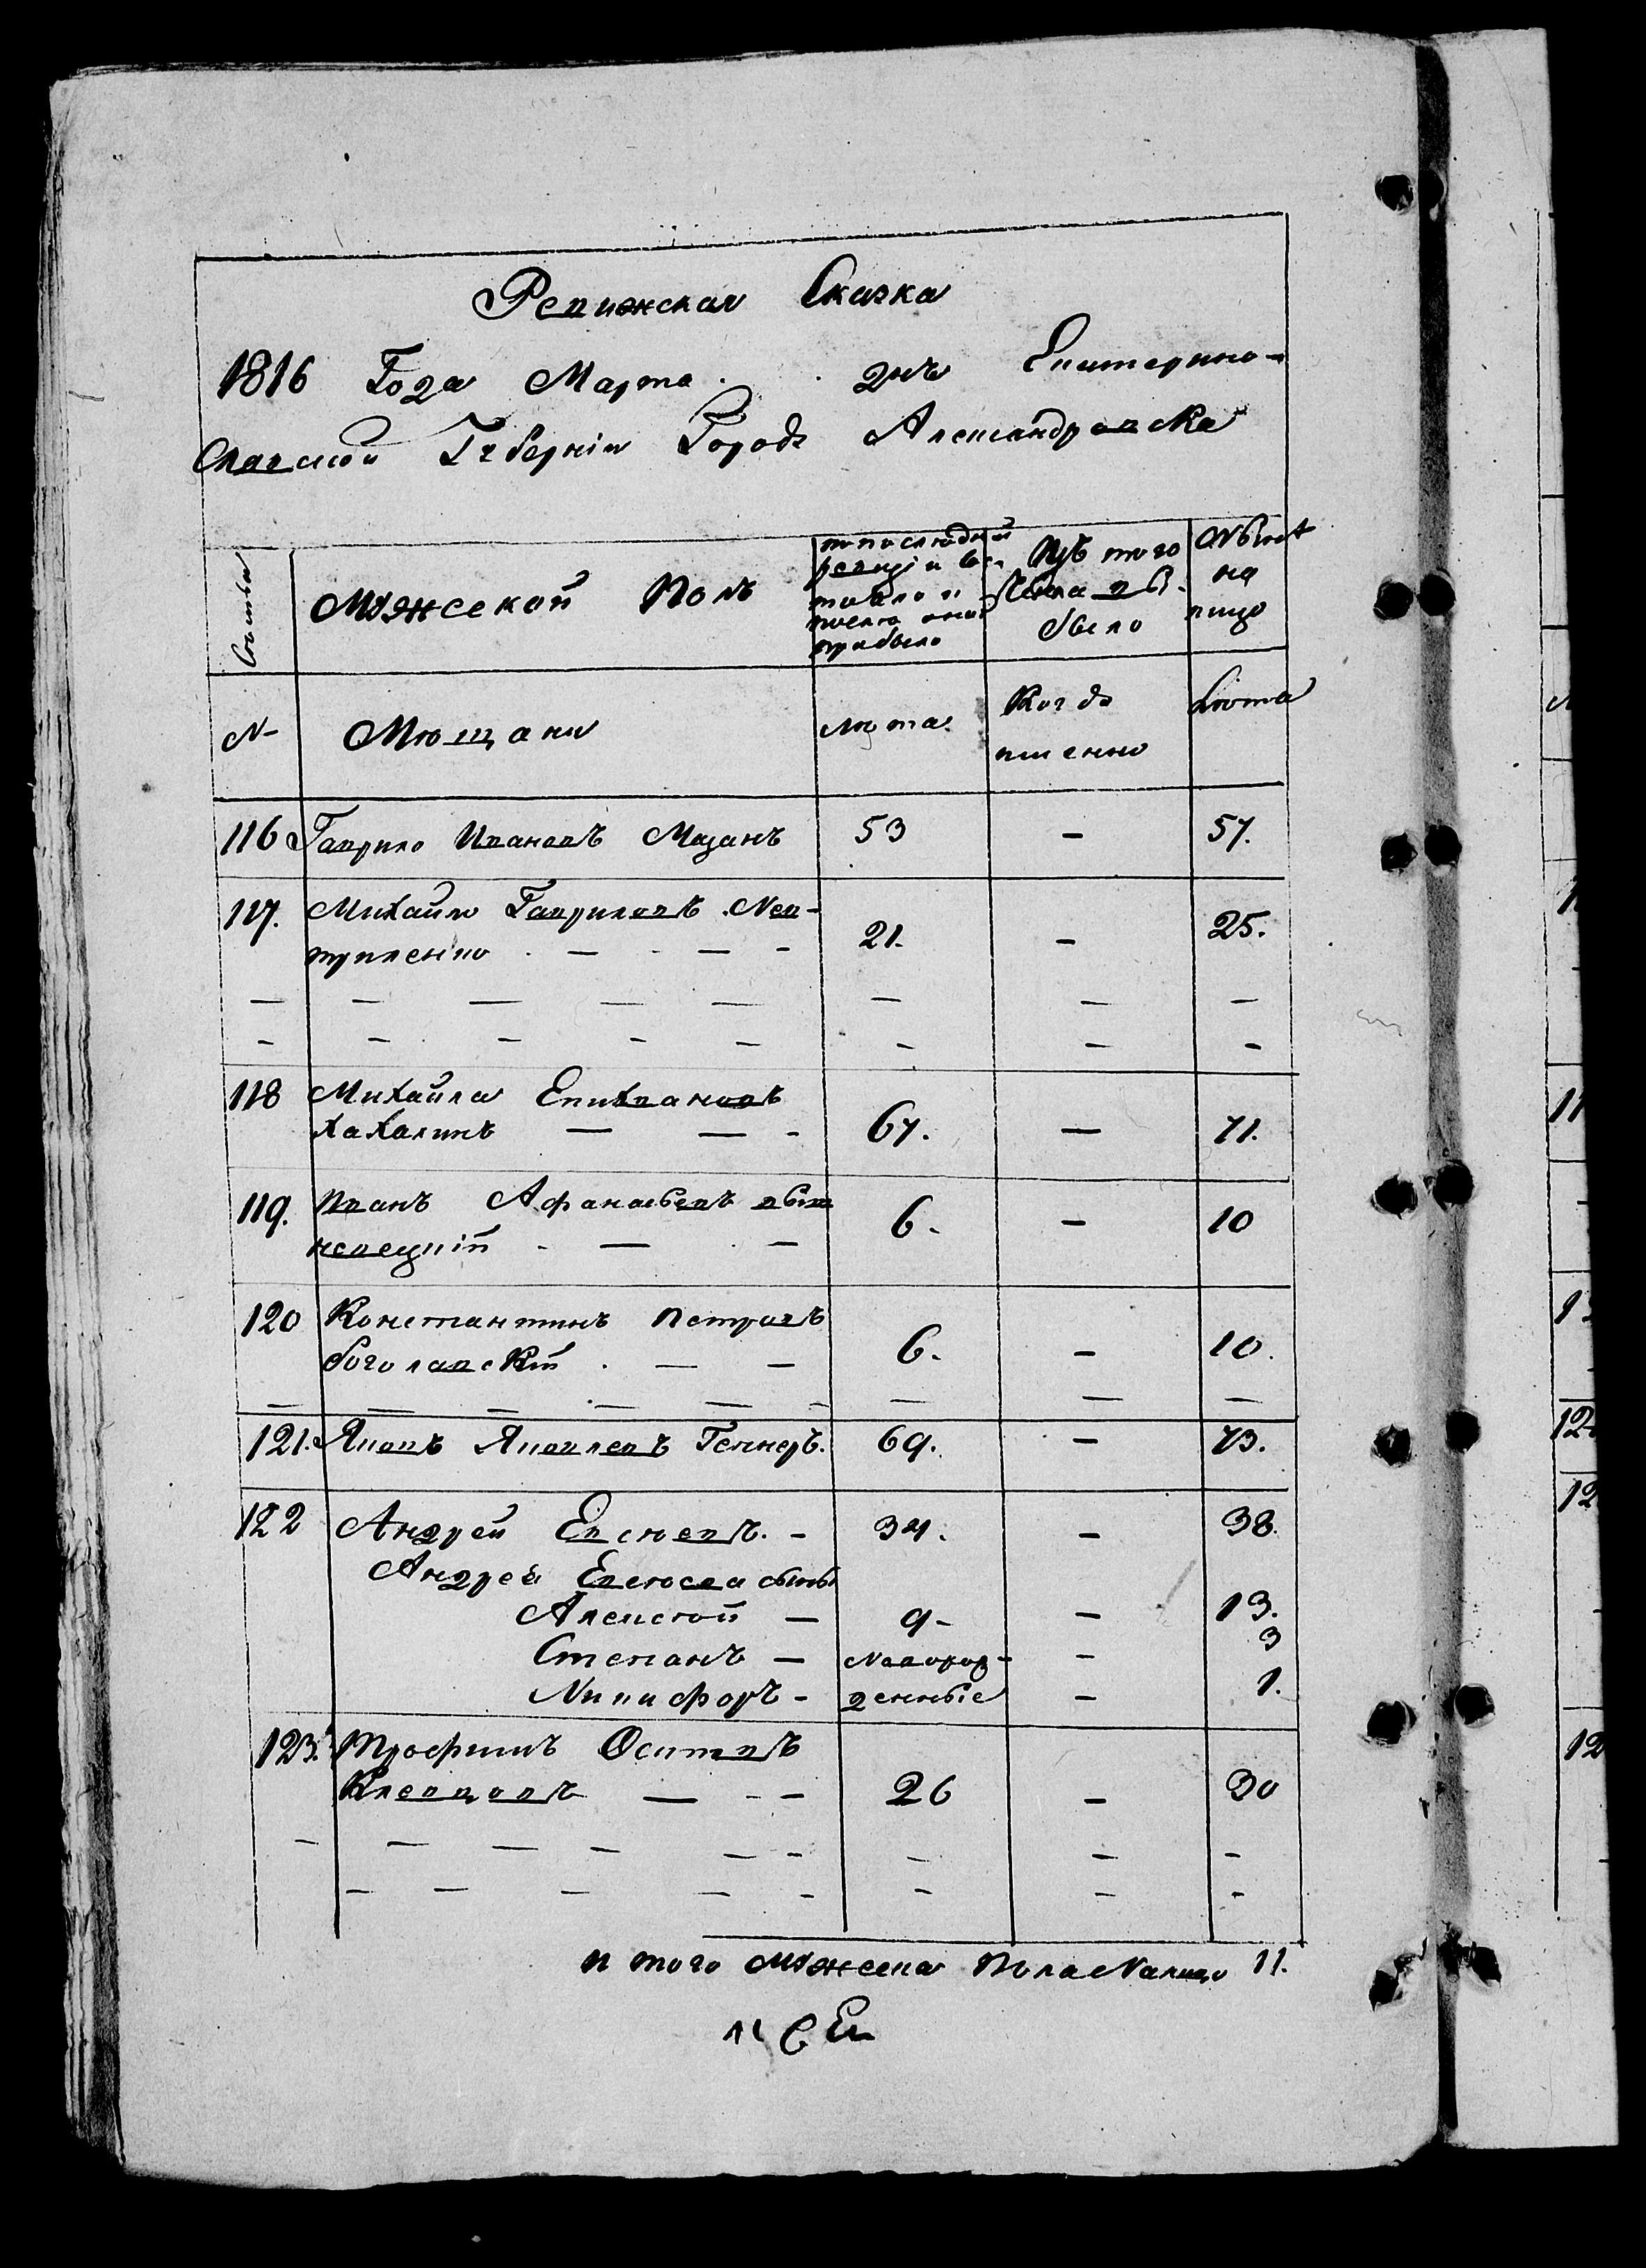 Ревижская Сказка
1816 Года Марта дня Екатерино-
Славской Губернiи Города Александровска
Семьи
Мужеской Полъ
по последней
ревизiи со-
стояло и
после оной
прибыло
Изъ того
числа выбыло
Ныне
на
лицо
N
Мещани
Лета
Когда
имянно
Лета
116 Гаврило Ивановъ Мазанъ 53 — 57.
117. Михайло Гавриловъ Nев-
трипенко 21. — 25.
118 Михайла Епихвановъ
Хахалинъ 67. — 71.
119. Иванъ Афанасьевъ
6. — 10
120 Константинъ Петровъ
боголавскiй 6. — 10.
121. Яковъ Яковлевъ Геннеръ. 69. — 73.
122 Андрей Евсеевъ. — 34. — 38.
Андрея Евсеева сыны
Алексей — 9 — 13.
Степанъ — Новорож- — 3
Nикифоръ — денные — 1.
123. Трофимъ Осиповъ
Клевцовъ 26 — 30
и того мужеска Пола Nалицо 11.